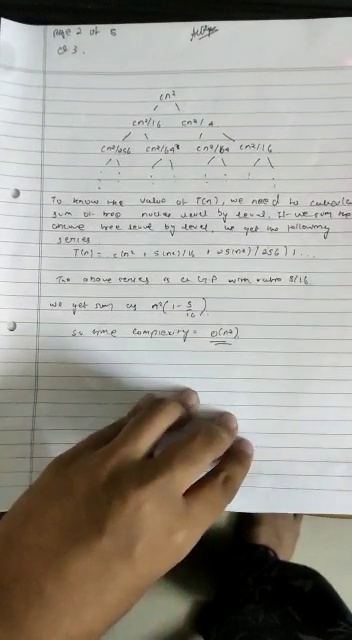 Page 2 of 5
Q 3.
cn²
cn²/16 cn²/4
cn²/256 cn²/64 cn²/64 cn²/16
To know the value of T(n), we need to
sum of tree nodes level by level. If we sum the
above tree level by level, we get the following
series
T(n) = c(n² + 5(n²)/16 + 25(n²)/256) + ...
The above series is a G.P with ratio 5/16.
we get sum as n²(1 - 5/16).
so time complexity = O(n²)